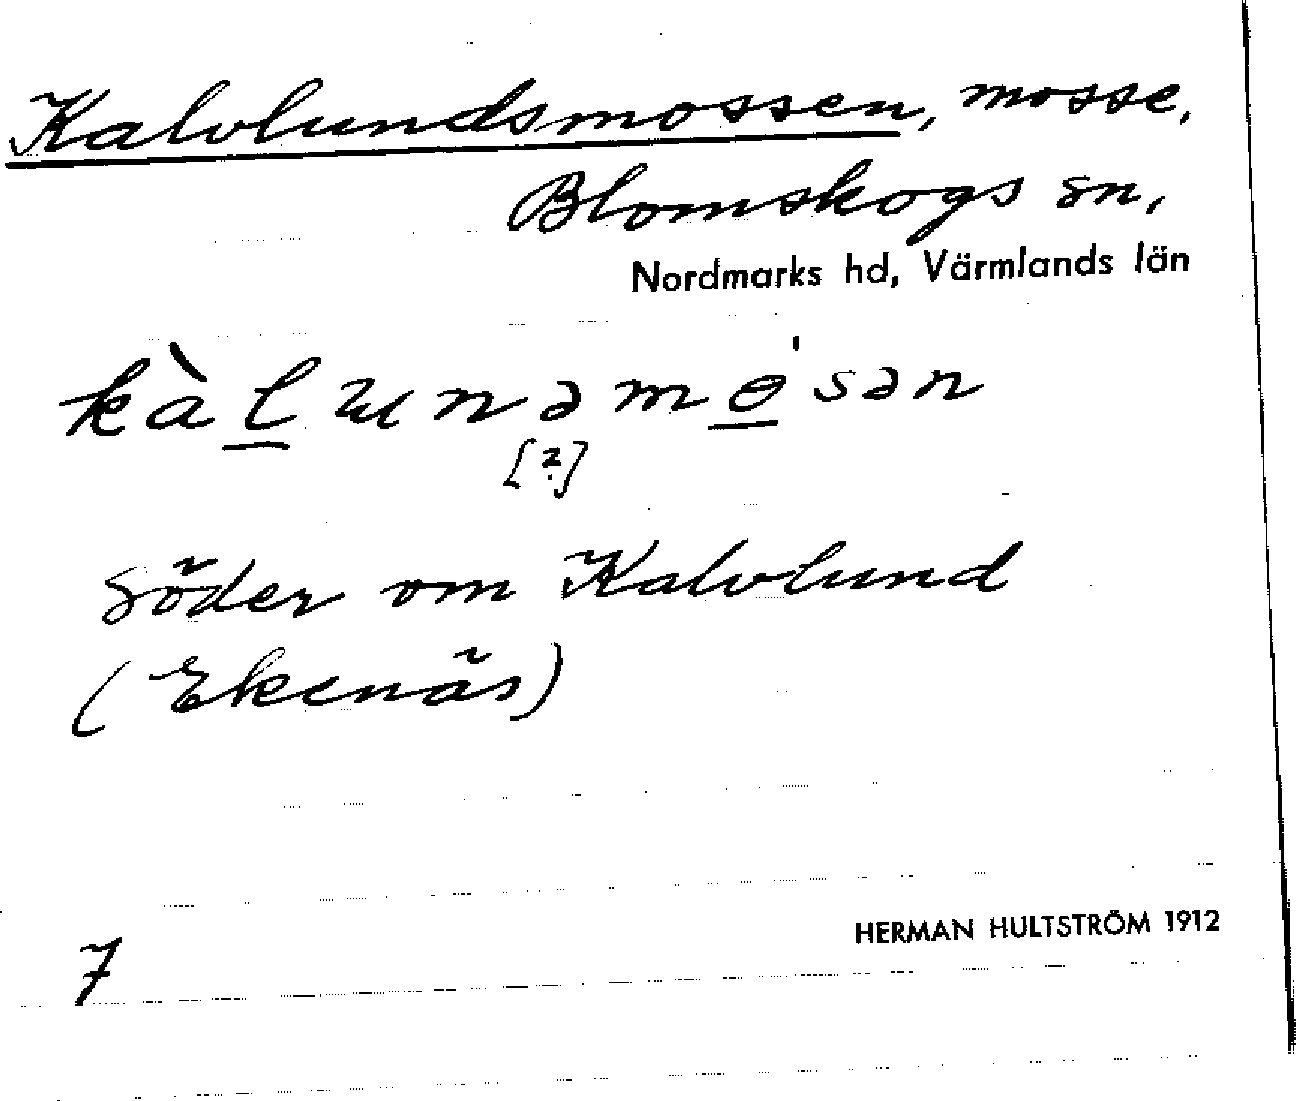 Kalvlundsmossen, mosse,
Blomskogs sn,
Nordmarks hd, Värmlands län
[?]
Söder om Kalvlund
(Ekenäs)
HERMAN HULTSTRÖM 1912
7